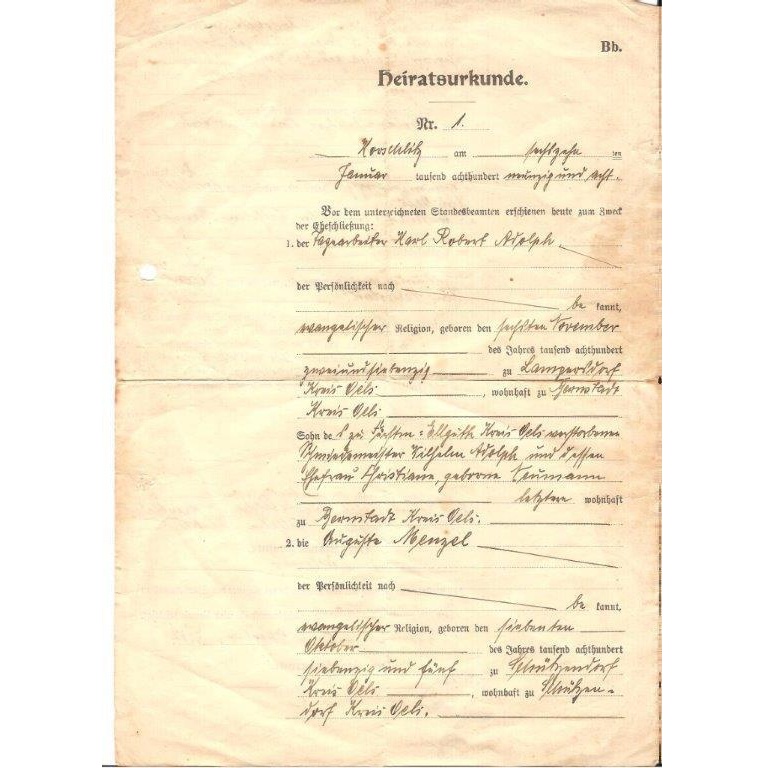 Bb.
Heiratsurkunde.
Nr. 1.
Korschlitz am sechszehn ten
Januar tausend achthundert neunzig und acht.
Vor dem unterzeichneten Standesbeamten erschienen heute zum Zweck
der Eheschließung:
1. der Tagearbeiter Karl Robert Adolph
der Persönlichkeit nach
be kannt,
evangelischer Religion, geboren den sechsten November
des Jahres tausend achthundert
zweiundsiebenzig zu Lampersdorf
Kreis Oels, wohnhaft zu Bernstadt
Kreis Oels
Sohn des zu Ellguth Kreis Oels verstorbenen
Schmiedemeister Wilhelm Adolph und dessen
Ehefrau Christiane, geborne Neumann
letztere wohnhaft
zu Bernstadt Kreis Oels.
2. die Auguste Menzel
der Persönlichkeit nach
be kannt,
evangelischer Religion, geboren den siebenten
Oktober des Jahres tausend achthundert
siebenzig und fünf zu Schützendorf
Kreis Oels, wohnhaft zu Schützen-
dorf Kreis Oels.